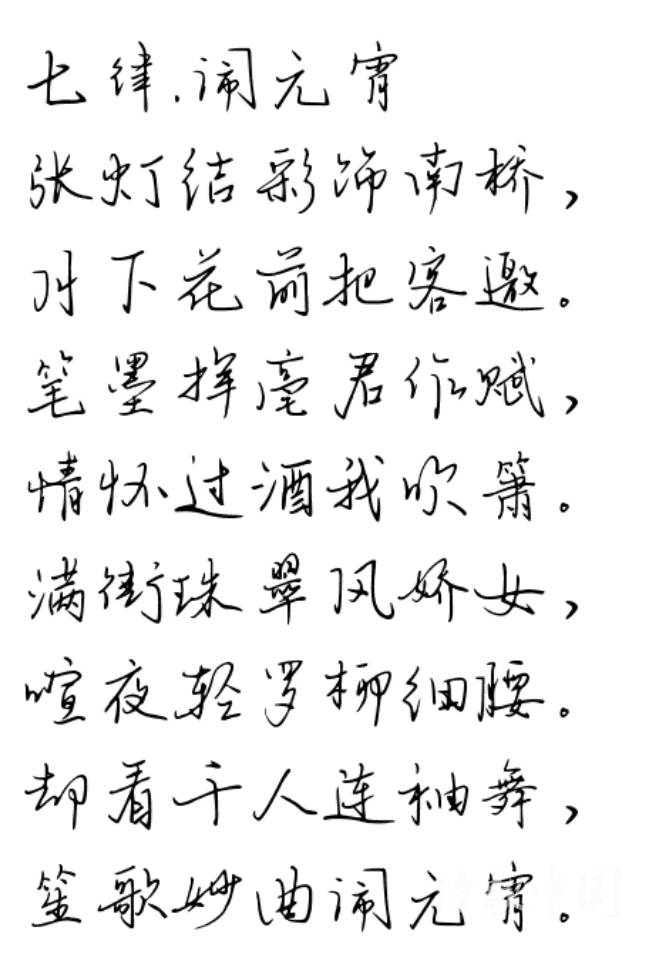 七律.闹元宵
张灯结彩饰南桥,
月下花前把客邀。
笔墨挥毫君作赋,
情怀过酒我吹箫。
满街珠翠风娇女,
喧夜轻罗柳细腰。
却看千人连袖舞,
笙歌妙曲闹元宵。